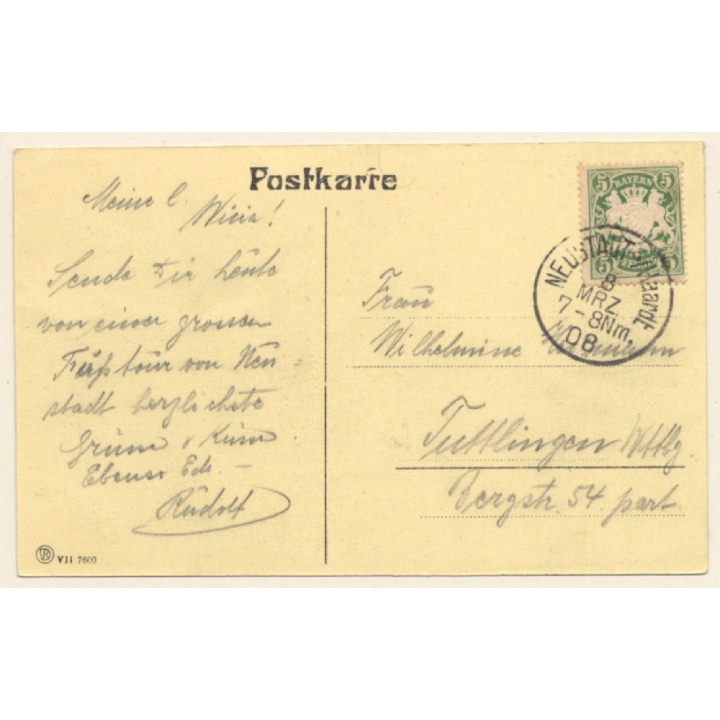 Postkarte
Meine l.
Sende Dir heute
von einer grossen
Fußtour von Neu-
stadt herzlichste
Grüsse
Ebenso
Rudolf
VR VII 7600
5 BAYERN 5
5 5
NEUSTADT a. Haardt.
8
MRZ
7-8Nm.
08
Frau
Wilhelmine
Tuttlingen Wttbg
Bergstr. 54. part.